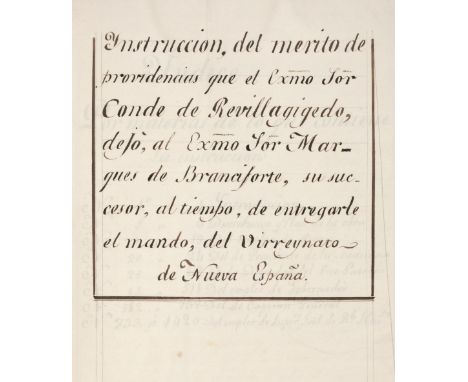 Ynstruccion, del merito de
providencias que el Exmõ Sõr
Conde de Revillagigedo,
dejò, al Exmõ Sõr Mar-
ques de Branciforte, su suc-
cesor, al tiempo, de entregarle
el mando, del Virreynato
de Nueva España.